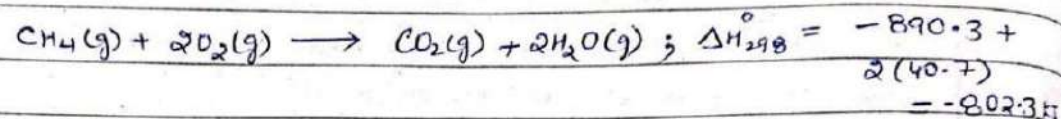 CH₄(g) + 2O₂(g) ⟶ CO₂(g) + 2H₂O(g) ; ΔH°₂₉₈ = -890.3 +
2(40.7)
= -802.3